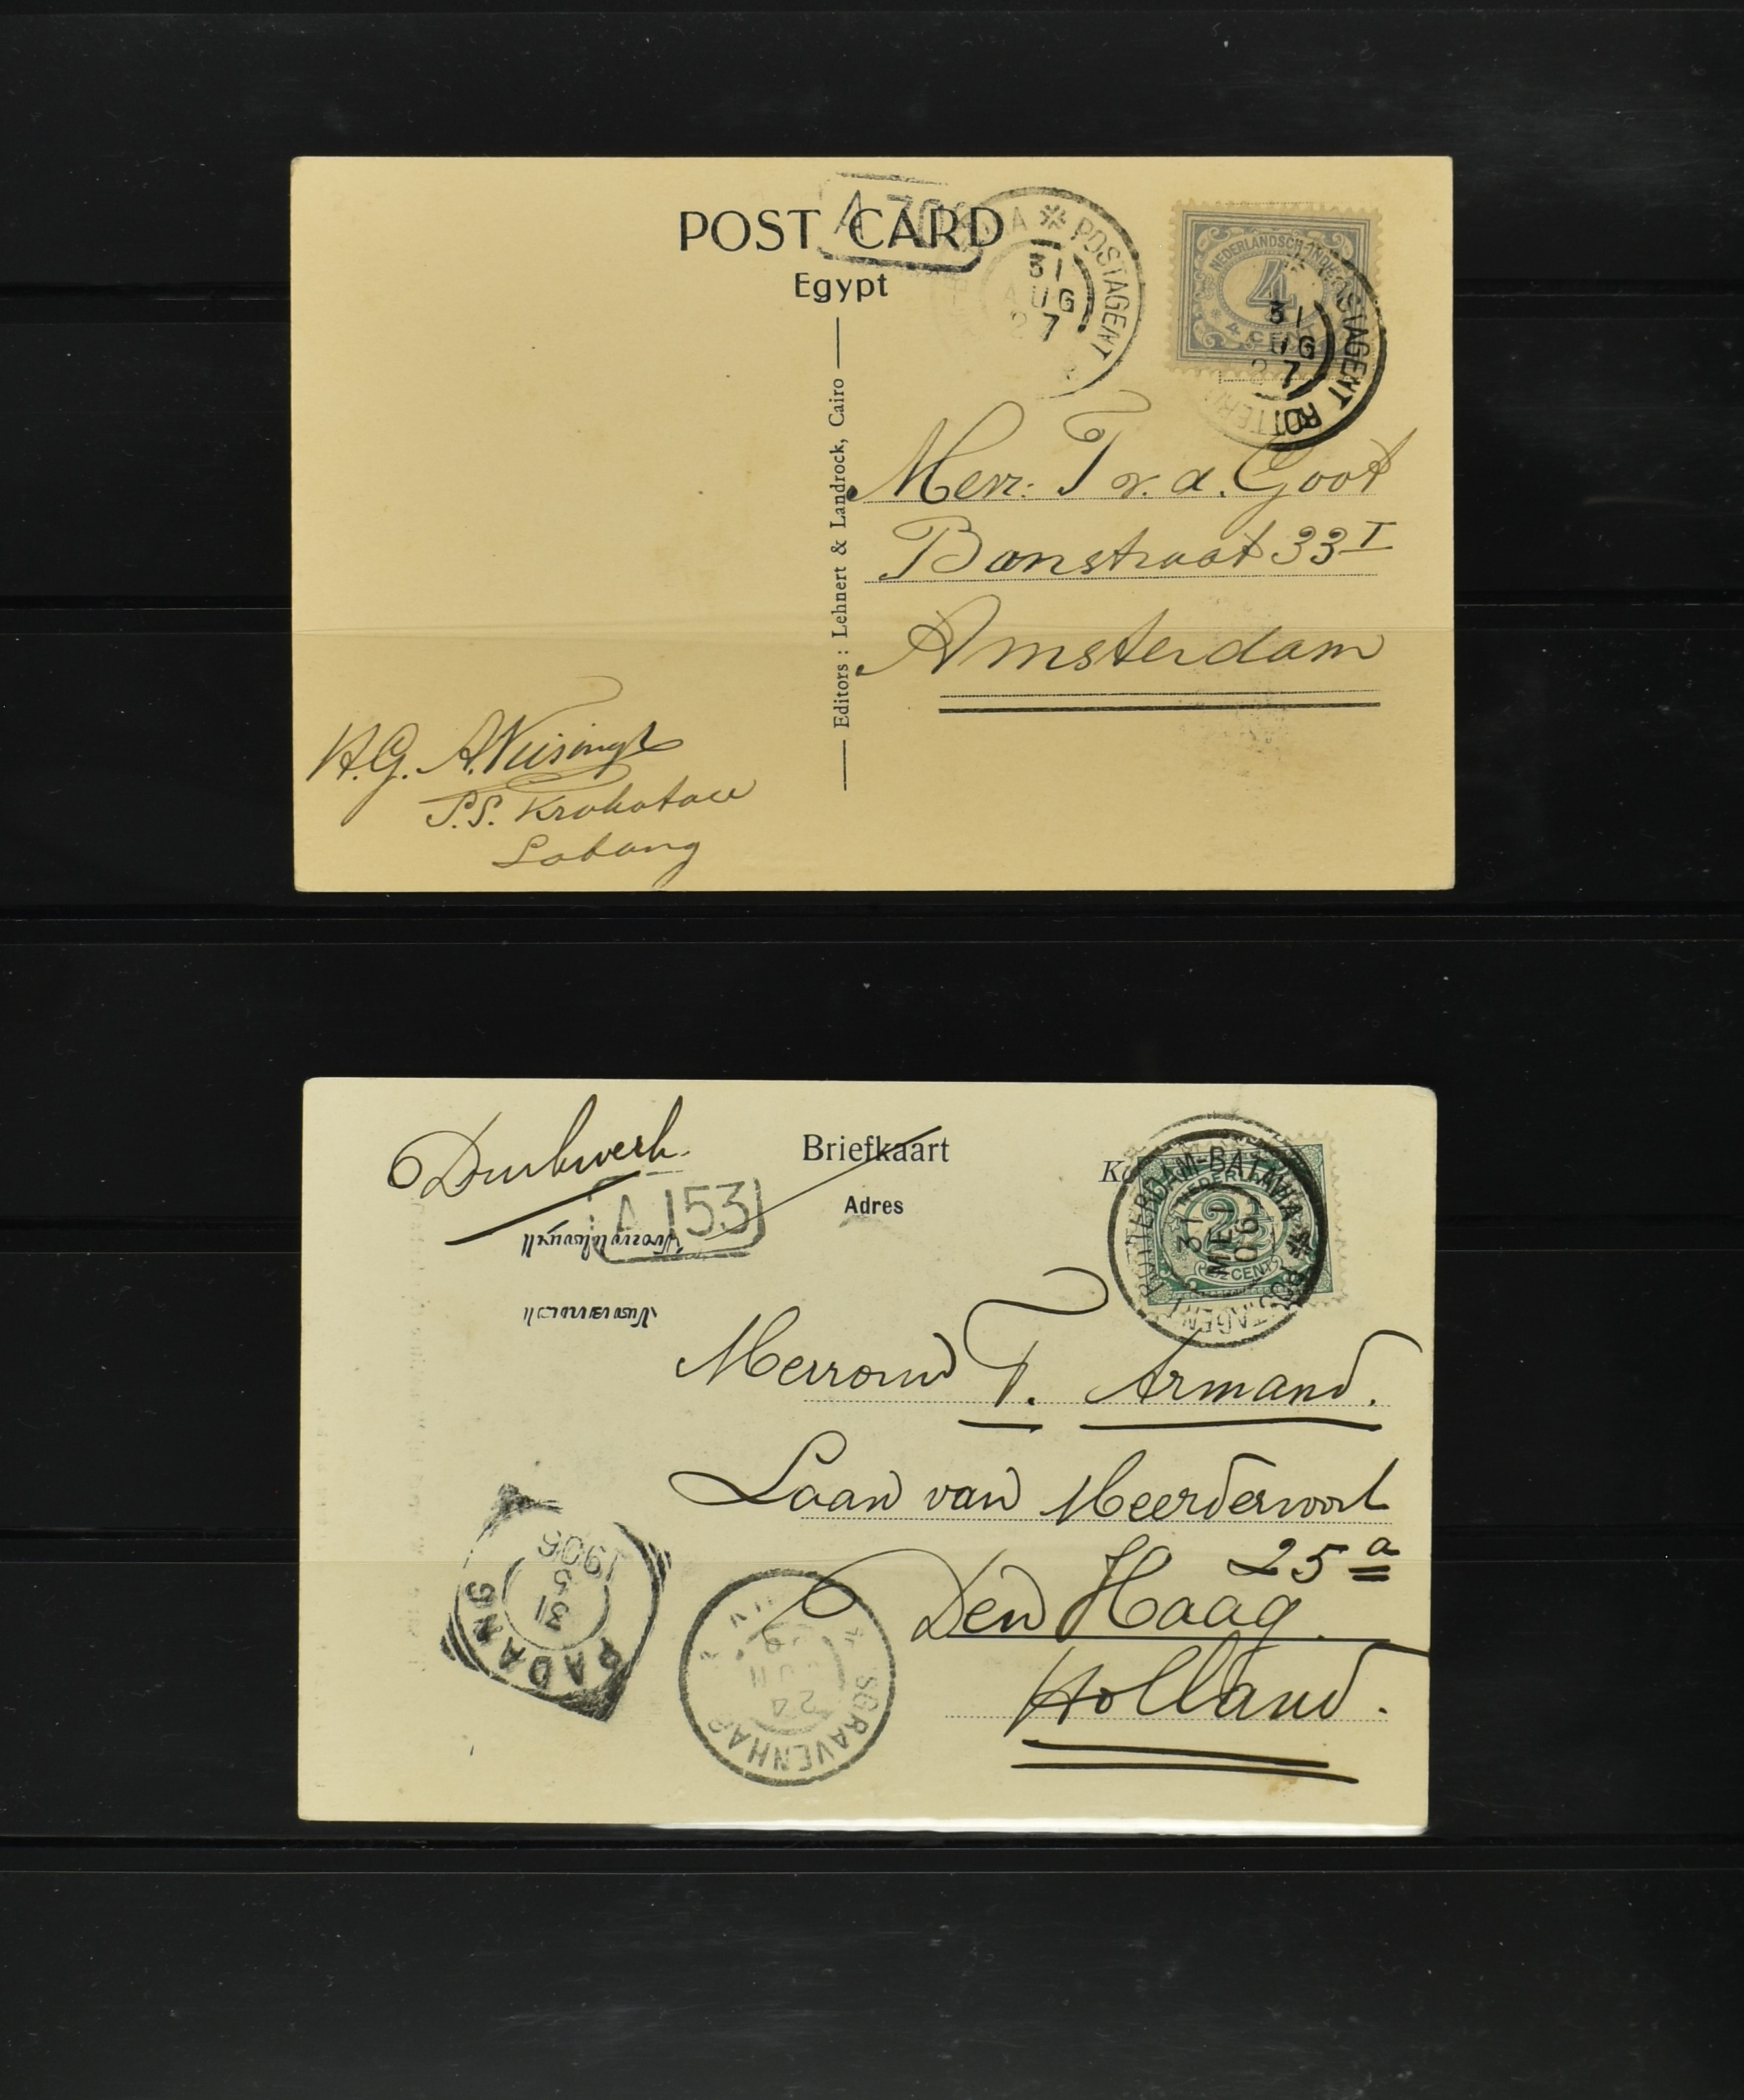 POST CARD
Egypt
* POSTAGENT
31
AUG
27
NEDERLANDSCH-INDIË
4
4 CENT
POSTAGENT ROTTERD
31
UG
27
Editors : Lehnert & Landrock, Cairo
Merr: T v. d. Goot
Banstraat 33 I
Amsterdam
H.G. A.
S.S. Krakatau
Sabang
Drukwerk.
Briefkaart
Adres
A 153
ROTTERDAM-BATAVIA * POSTAGENT
31
MEI
06
NEDERLAND
2½
2½ CENT
T. Armand.
Laan van Meerdervoort
25a
Den Haag.
Holland.
PADANG
31
5
1906
SGRAVENHAG
24
JUN